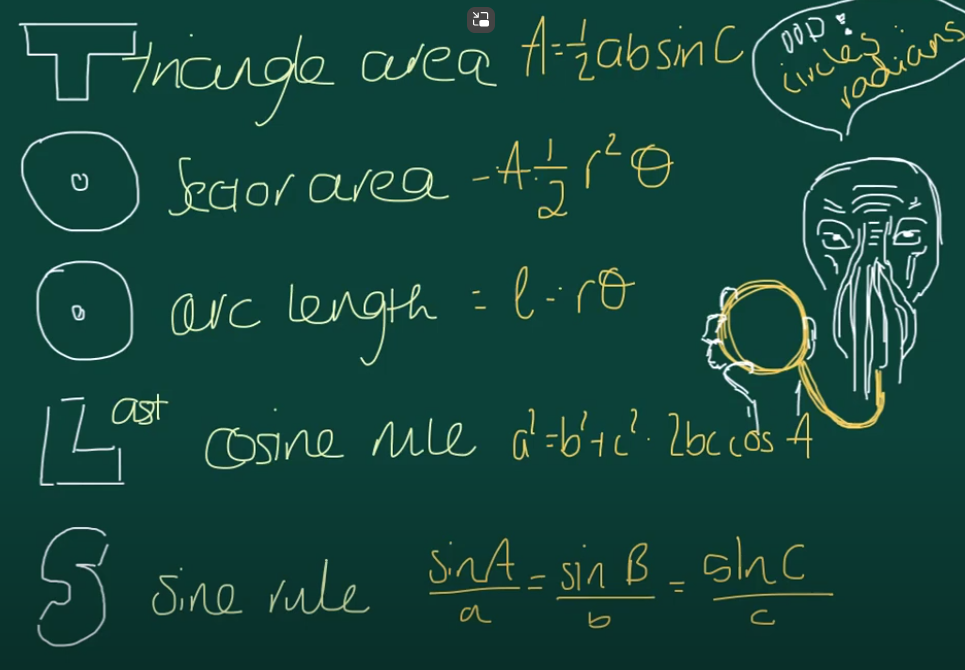 T triangle area A=½absinC
OOD: circles radians
O sector area - A = ½ r²θ
O arc length = l = rθ
Last cosine rule a²=b²+c²-2bc cos A
S sine rule sinA/a = sin B/b = sin C/c